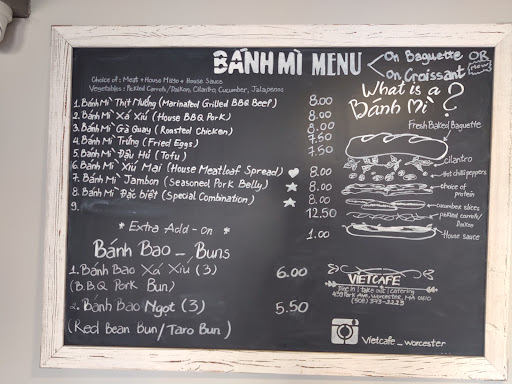 BÁNH MÌ MENU
On Baguette OR
On Croissant
(New)
Choice of: Meat + House Mayo + House Sauce
Vegetables: Pickled Carrots/Daikon, Cilantro, Cucumber, Jalapenos
1. Bánh Mì Thịt Nướng (Marinated Grilled BBQ Beef) 8.00
2. Bánh Mì Xá Xíu (House BBQ Pork) 8.00
3. Bánh Mì Gà Quay (Roasted Chicken) 8.00
4. Bánh Mì Trứng (Fried Eggs) 7.50
5. Bánh Mì Đậu Hủ (Tofu) 7.50
6. Bánh Mì Xíu Mại (House Meatloaf Spread) 8.00
7. Bánh Mì Jambon (Seasoned Pork Belly) 8.00
8. Bánh Mì Đặc biệt (Special Combination) 8.00
9. 12.50
* Extra Add-On * 1.00
Bánh Bao - Buns
1. Bánh Bao Xá Xíu (3) 6.00
(B.B.Q Pork Bun)
2. Bánh Bao Ngọt (3) 5.50
(Red Bean Bun/Taro Bun)
What is a
Bánh Mì?
Fresh Baked Baguette
cilantro
hot chili peppers
choice of
protein
cucumber slices
pickled carrots/
Daikon
House sauce
VIETCAFE
Dine in | take out | catering
430 Park Ave, Worcester, MA 01610
(508) 373-2223
Vietcafe_worcester